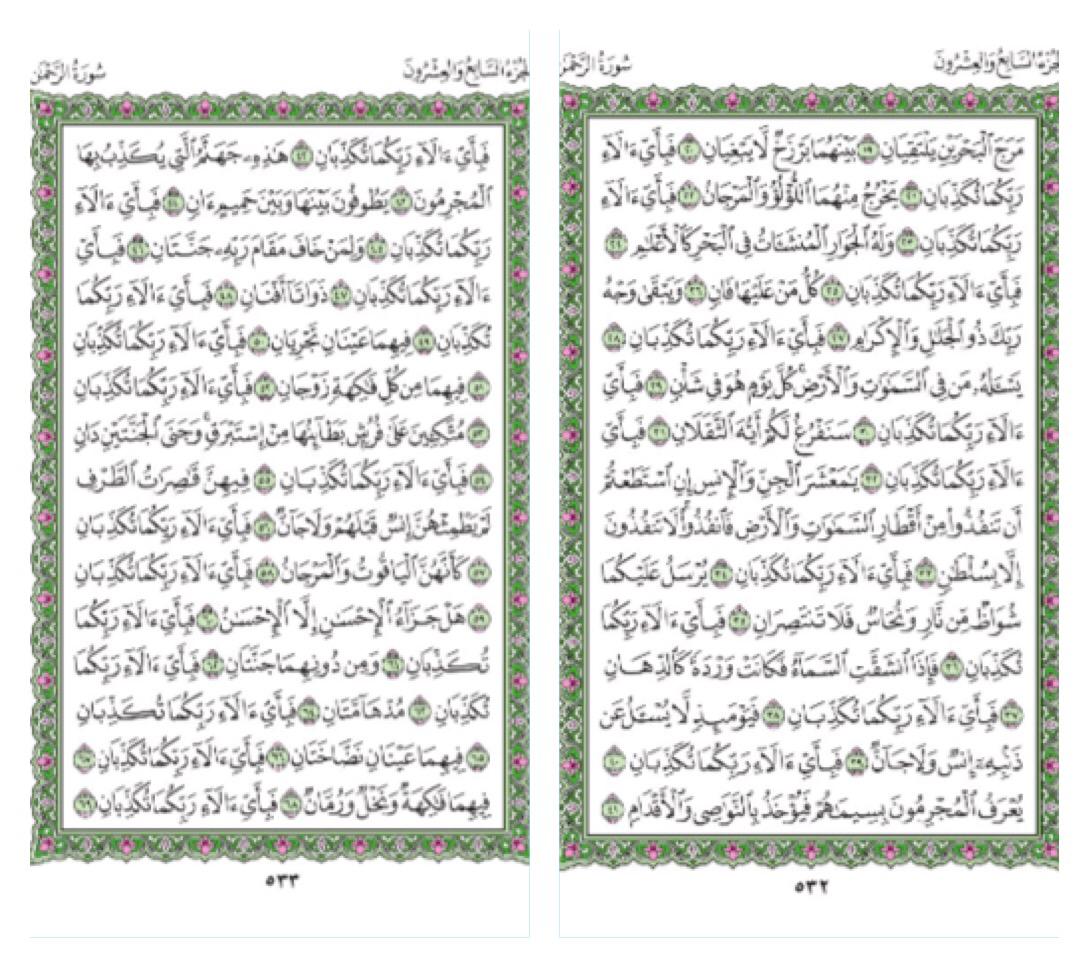 الجزء السابع والعشرون
سورة الرحمن
مَرَجَ ٱلْبَحْرَيْنِ يَلْتَقِيَانِ ١٩ بَيْنَهُمَا بَرْزَخٌ لَّا يَبْغِيَانِ ٢٠ فَبِأَيِّ ءَالَآءِ
رَبِّكُمَا تُكَذِّبَانِ ٢١ يَخْرُجُ مِنْهُمَا ٱللُّؤْلُؤُ وَٱلْمَرْجَانُ ٢٢ فَبِأَيِّ ءَالَآءِ
رَبِّكُمَا تُكَذِّبَانِ ٢٣ وَلَهُ ٱلْجَوَارِ ٱلْمُنشَـَٔاتُ فِى ٱلْبَحْرِ كَٱلْأَعْلَٰمِ ٢٤
فَبِأَيِّ ءَالَآءِ رَبِّكُمَا تُكَذِّبَانِ ٢٥ كُلُّ مَنْ عَلَيْهَا فَانٍ ٢٦ وَيَبْقَىٰ وَجْهُ
رَبِّكَ ذُو ٱلْجَلَٰلِ وَٱلْإِكْرَامِ ٢٧ فَبِأَيِّ ءَالَآءِ رَبِّكُمَا تُكَذِّبَانِ ٢٨
يَسْـَٔلُهُۥ مَن فِى ٱلسَّمَٰوَٰتِ وَٱلْأَرْضِ ۚ كُلَّ يَوْمٍ هُوَ فِى شَأْنٍ ٢٩ فَبِأَيِّ
ءَالَآءِ رَبِّكُمَا تُكَذِّبَانِ ٣٠ سَنَفْرُغُ لَكُمْ أَيُّهَ ٱلثَّقَلَانِ ٣١ فَبِأَيِّ
ءَالَآءِ رَبِّكُمَا تُكَذِّبَانِ ٣٢ يَٰمَعْشَرَ ٱلْجِنِّ وَٱلْإِنسِ إِنِ ٱسْتَطَعْتُمْ
أَن تَنفُذُوا۟ مِنْ أَقْطَارِ ٱلسَّمَٰوَٰتِ وَٱلْأَرْضِ فَٱنفُذُوا۟ ۚ لَا تَنفُذُونَ
إِلَّا بِسُلْطَٰنٍ ٣٣ فَبِأَيِّ ءَالَآءِ رَبِّكُمَا تُكَذِّبَانِ ٣٤ يُرْسَلُ عَلَيْكُمَا
شُوَاظٌ مِّن نَّارٍ وَنُحَاسٌ فَلَا تَنتَصِرَانِ ٣٥ فَبِأَيِّ ءَالَآءِ رَبِّكُمَا
تُكَذِّبَانِ ٣٦ فَإِذَا ٱنشَقَّتِ ٱلسَّمَآءُ فَكَانَتْ وَرْدَةً كَٱلدِّهَانِ
٣٧ فَبِأَيِّ ءَالَآءِ رَبِّكُمَا تُكَذِّبَانِ ٣٨ فَيَوْمَئِذٍ لَّا يُسْـَٔلُ عَن
ذَنۢبِهِۦٓ إِنسٌ وَلَا جَآنٌّ ٣٩ فَبِأَيِّ ءَالَآءِ رَبِّكُمَا تُكَذِّبَانِ ٤٠
يُعْرَفُ ٱلْمُجْرِمُونَ بِسِيمَٰهُمْ فَيُؤْخَذُ بِٱلنَّوَٰصِى وَٱلْأَقْدَامِ ٤١
٥٣٢
الجزء السابع والعشرون
سورة الرحمن
فَبِأَيِّ ءَالَآءِ رَبِّكُمَا تُكَذِّبَانِ ٤٢ هَٰذِهِۦ جَهَنَّمُ ٱلَّتِى يُكَذِّبُ بِهَا
ٱلْمُجْرِمُونَ ٤٣ يَطُوفُونَ بَيْنَهَا وَبَيْنَ حَمِيمٍ ءَانٍ ٤٤ فَبِأَيِّ ءَالَآءِ
رَبِّكُمَا تُكَذِّبَانِ ٤٥ وَلِمَنْ خَافَ مَقَامَ رَبِّهِۦ جَنَّتَانِ ٤٦ فَبِأَيِّ
ءَالَآءِ رَبِّكُمَا تُكَذِّبَانِ ٤٧ ذَوَاتَآ أَفْنَانٍ ٤٨ فَبِأَيِّ ءَالَآءِ رَبِّكُمَا
تُكَذِّبَانِ ٤٩ فِيهِمَا عَيْنَانِ تَجْرِيَانِ ٥٠ فَبِأَيِّ ءَالَآءِ رَبِّكُمَا تُكَذِّبَانِ
٥١ فِيهِمَا مِن كُلِّ فَٰكِهَةٍ زَوْجَانِ ٥٢ فَبِأَيِّ ءَالَآءِ رَبِّكُمَا تُكَذِّبَانِ
٥٣ مُتَّكِـِٔينَ عَلَىٰ فُرُشٍۭ بَطَآئِنُهَا مِنْ إِسْتَبْرَقٍ ۚ وَجَنَى ٱلْجَنَّتَيْنِ دَانٍ
٥٤ فَبِأَيِّ ءَالَآءِ رَبِّكُمَا تُكَذِّبَانِ ٥٥ فِيهِنَّ قَٰصِرَٰتُ ٱلطَّرْفِ
لَمْ يَطْمِثْهُنَّ إِنسٌ قَبْلَهُمْ وَلَا جَآنٌّ ٥٦ فَبِأَيِّ ءَالَآءِ رَبِّكُمَا تُكَذِّبَانِ
٥٧ كَأَنَّهُنَّ ٱلْيَاقُوتُ وَٱلْمَرْجَانُ ٥٨ فَبِأَيِّ ءَالَآءِ رَبِّكُمَا تُكَذِّبَانِ
٥٩ هَلْ جَزَآءُ ٱلْإِحْسَٰنِ إِلَّا ٱلْإِحْسَٰنُ ٦٠ فَبِأَيِّ ءَالَآءِ رَبِّكُمَا
تُكَذِّبَانِ ٦١ وَمِن دُونِهِمَا جَنَّتَانِ ٦٢ فَبِأَيِّ ءَالَآءِ رَبِّكُمَا
تُكَذِّبَانِ ٦٣ مُدْهَآمَّتَانِ ٦٤ فَبِأَيِّ ءَالَآءِ رَبِّكُمَا تُكَذِّبَانِ
٦٥ فِيهِمَا عَيْنَانِ نَضَّاخَتَانِ ٦٦ فَبِأَيِّ ءَالَآءِ رَبِّكُمَا تُكَذِّبَانِ ٦٧
فِيهِمَا فَٰكِهَةٌ وَنَخْلٌ وَرُمَّانٌ ٦٨ فَبِأَيِّ ءَالَآءِ رَبِّكُمَا تُكَذِّبَانِ ٦٩
٥٣٣